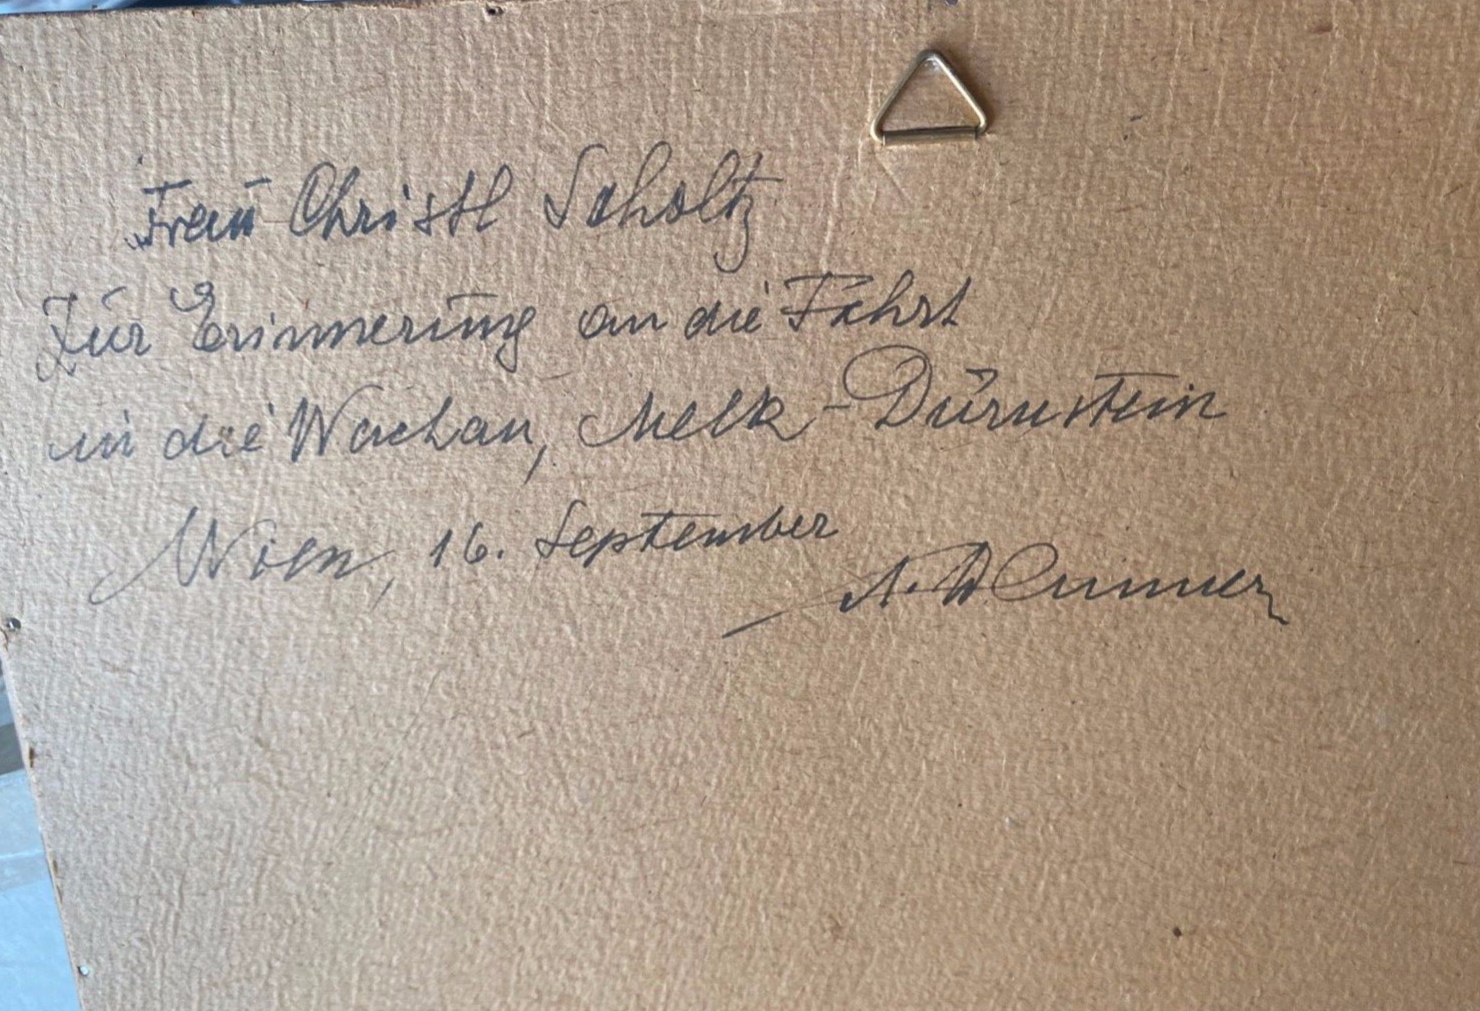 Frau Christl Scholtz
Zur Erinnerung an die Fahrt
in die Wachau, Melk - Dürnstein
Wien, 16. September